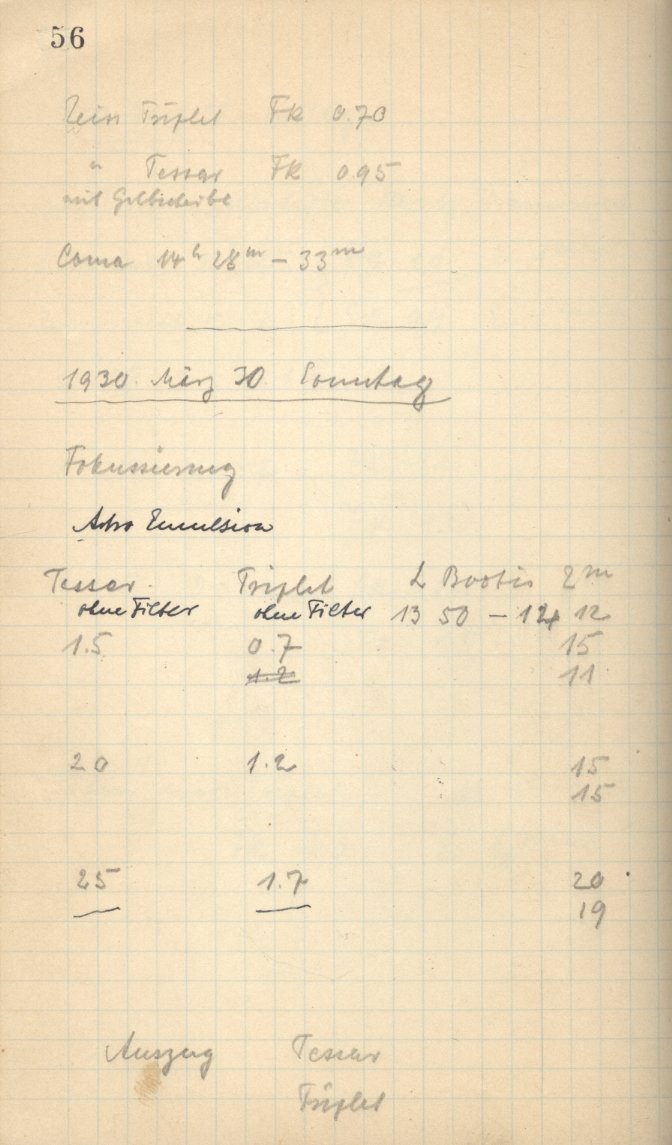 56
Zeiss Triplet Fk 0.70
" Tessar Fk 0.95
mit Gelbscheibe
Coma 14h 28m – 33m
1930 März 30. Sonntag
Fokussierung
Astro Emulsion
Tessar Triplet α Bootis 2m
ohne Filter ohne Filter 13 50 – 14 12
1.5 0.7 15
1.2 11
20 1.2 15
15
25 1.7 20
19
Auszug Tessar
Triplet